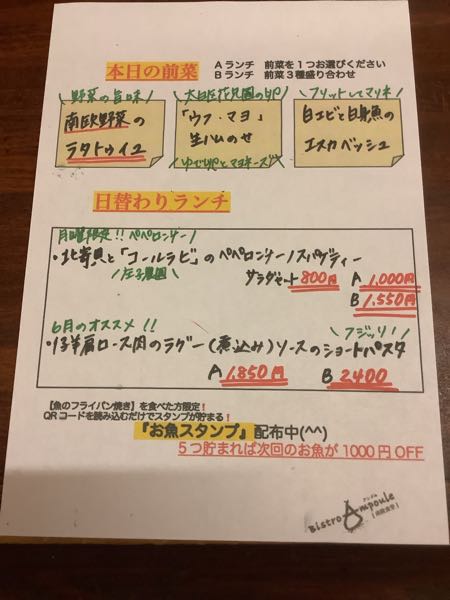 本日の前菜
Aランチ 前菜を1つお選びください
Bランチ 前菜3種盛り合わせ
野菜の旨味
南欧野菜の
ラタトゥイユ
大田庄花見園の卵
「ウフ・マヨ」
生ハムのせ
ゆで卵とマヨネーズ
フリットしてマリネ
白エビと白身魚の
エスカベッシュ
日替わりランチ
月曜限定!! ペペロンチーノ
・北寄貝と「コールラビ」のペペロンチーノスパゲティー
庄子農園
サラダセット 800円 A 1,000円
B 1,550円
6月のオススメ!!
フジッリ!
・仔羊肩ロース肉のラグー(煮込み)ソースのショートパスタ
A 1,850円 B 2400
【魚のフライパン焼き】を食べた方限定!
QRコードを読み込むだけでスタンプが貯まる!
『お魚スタンプ』配布中(^^)
5つ貯まれば次回のお魚が1000円OFF
アンプル
Bistro Ampoule